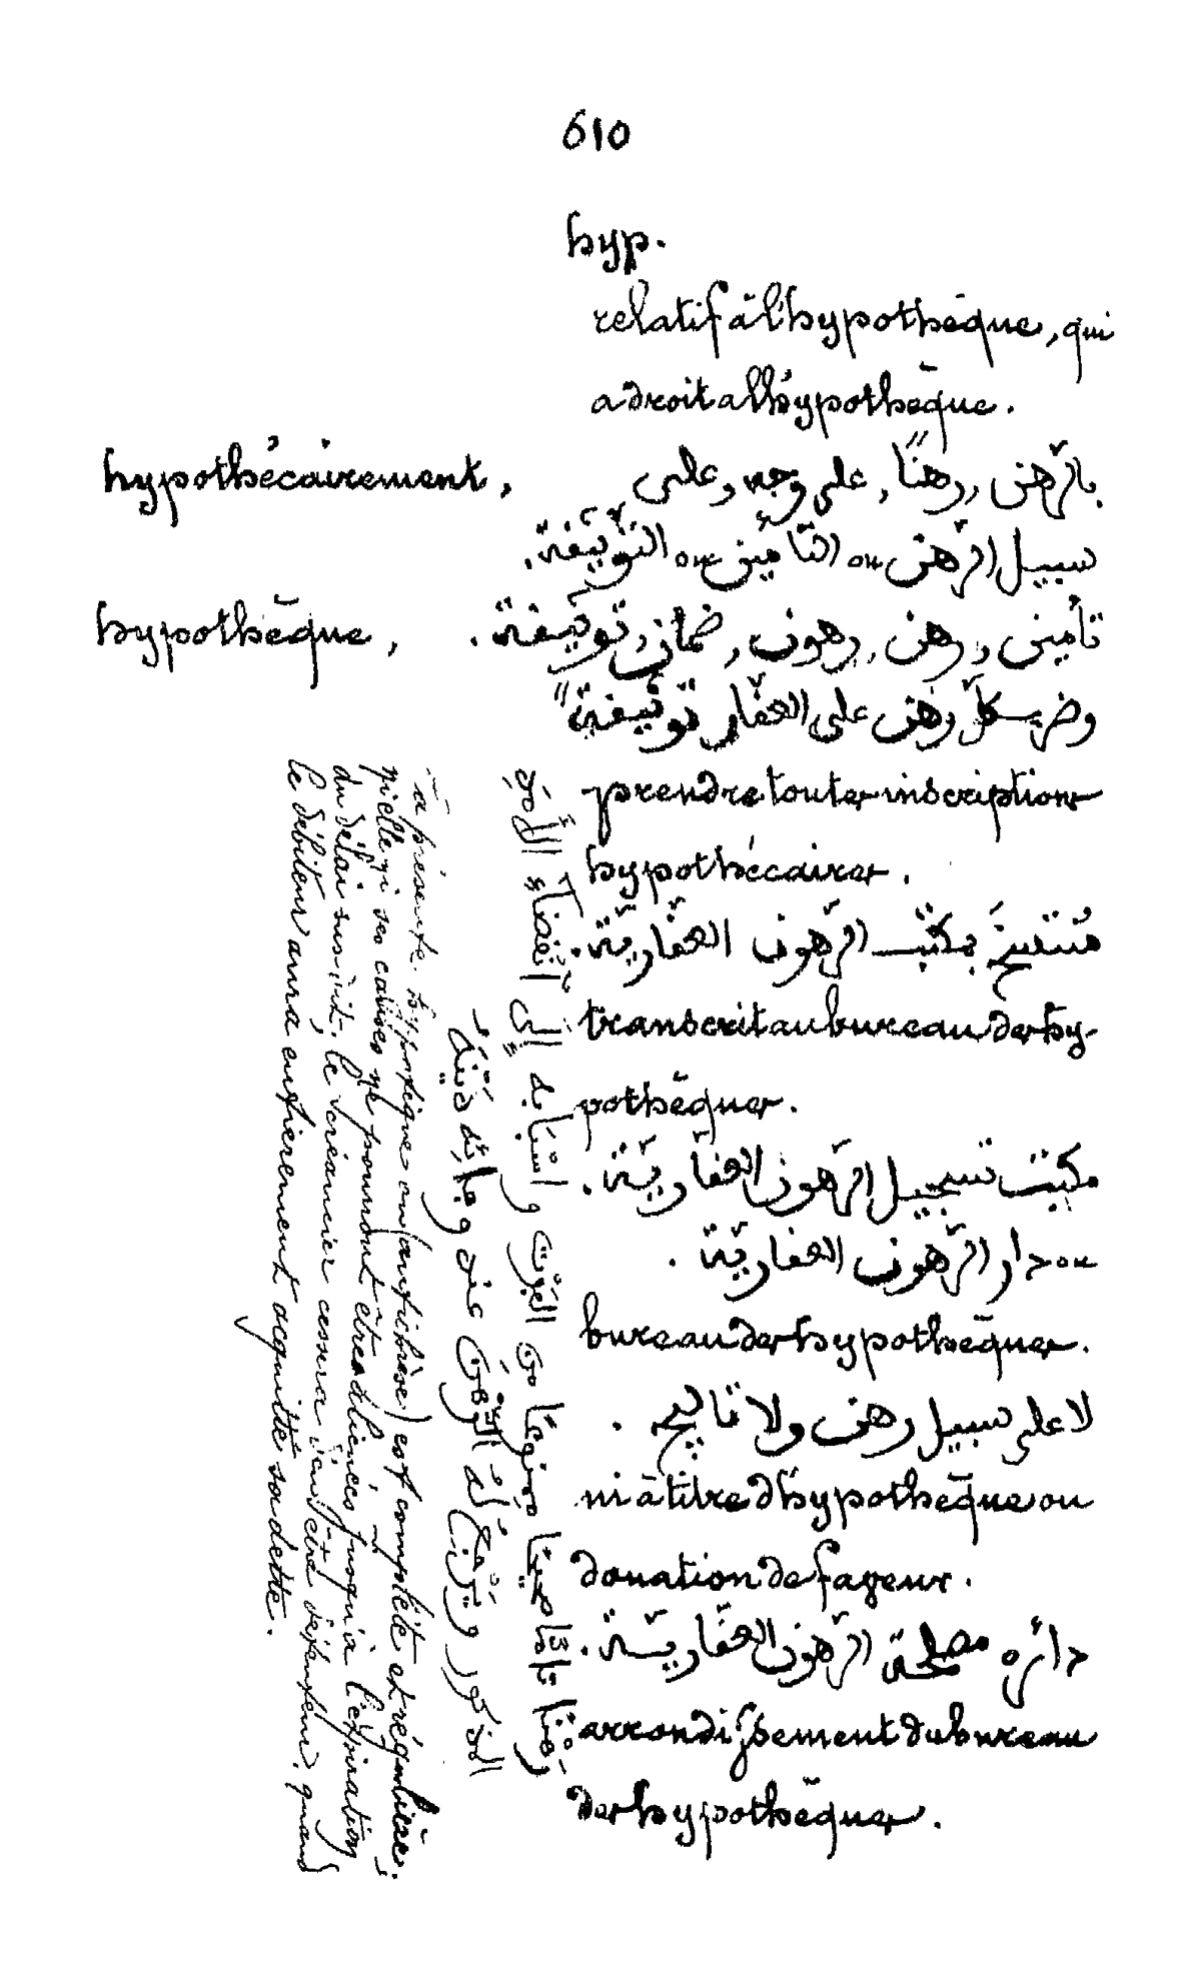 610
hyp.
relatif à l'hypothèque, qui
a droit à l'hypothèque.
hypothécairement, بالرّهن, رهنًا, على وجه وعلى
سبيل الرّهن ou التّأمين ou التّوثيقة.
hypothèque, تأمين, رهن, رهون, ضمان, توثيقة.
رهن على العقار توثيقة
prendre toute inscription
hypothécaire.
بمكتب الرّهون العقاريّة.
transcrit au bureau des hy-
pothèques.
مكتب تسجيل الرّهون العقاريّة.
ou دار الرّهون العقاريّة.
bureau des hypothèques.
لا على سبيل رهن ولا
ni à titre d'hypothèque ou
donation de faveur.
دائره مصلحة الرّهون العقاريّة.
arrondissement du bureau
des hypothèques.
رهنا تامّا صحيحًا ممنوعًا من الفوت واسبابه إلى انقضاء الأمد
المذكور عند وفائه دينه
la présente hypothèque ou (antichrèse) est complète et régulière;
ni elle ni ses causes ne pourront être aliénées jusqu'à l'expiration
du délai susdit; le créancier cessera d'en être détenteur quand
le débiteur aura entièrement acquitté sa dette.